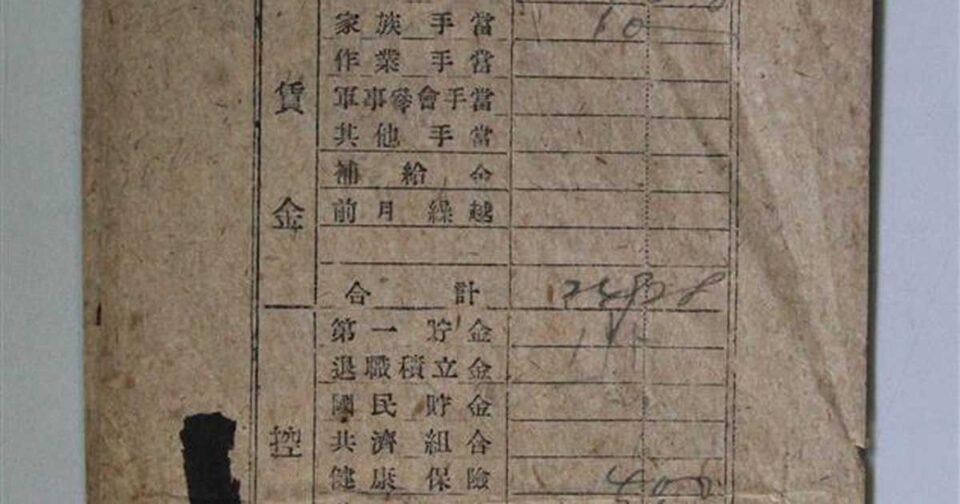 賃金
家族手當 60
作業手當
軍事參會手當
其他手當
補給金
前月繰越
合計
控
第一貯金
退職積立金
國民貯金
共濟組合
健康保險